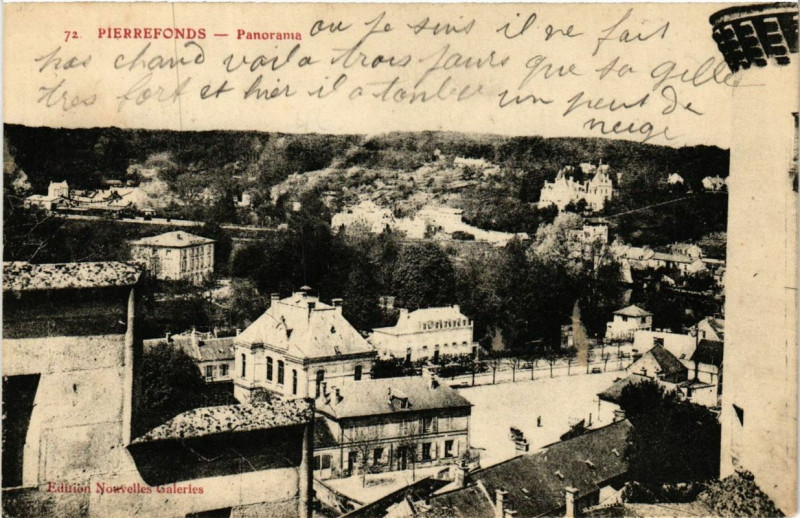 72. PIERREFONDS — Panorama
ou je suis il ne fait
pas chaud voila trois jours que sa gelle
tres fort et hier il a tonber un peut de
neige
Edition Nouvelles Galeries